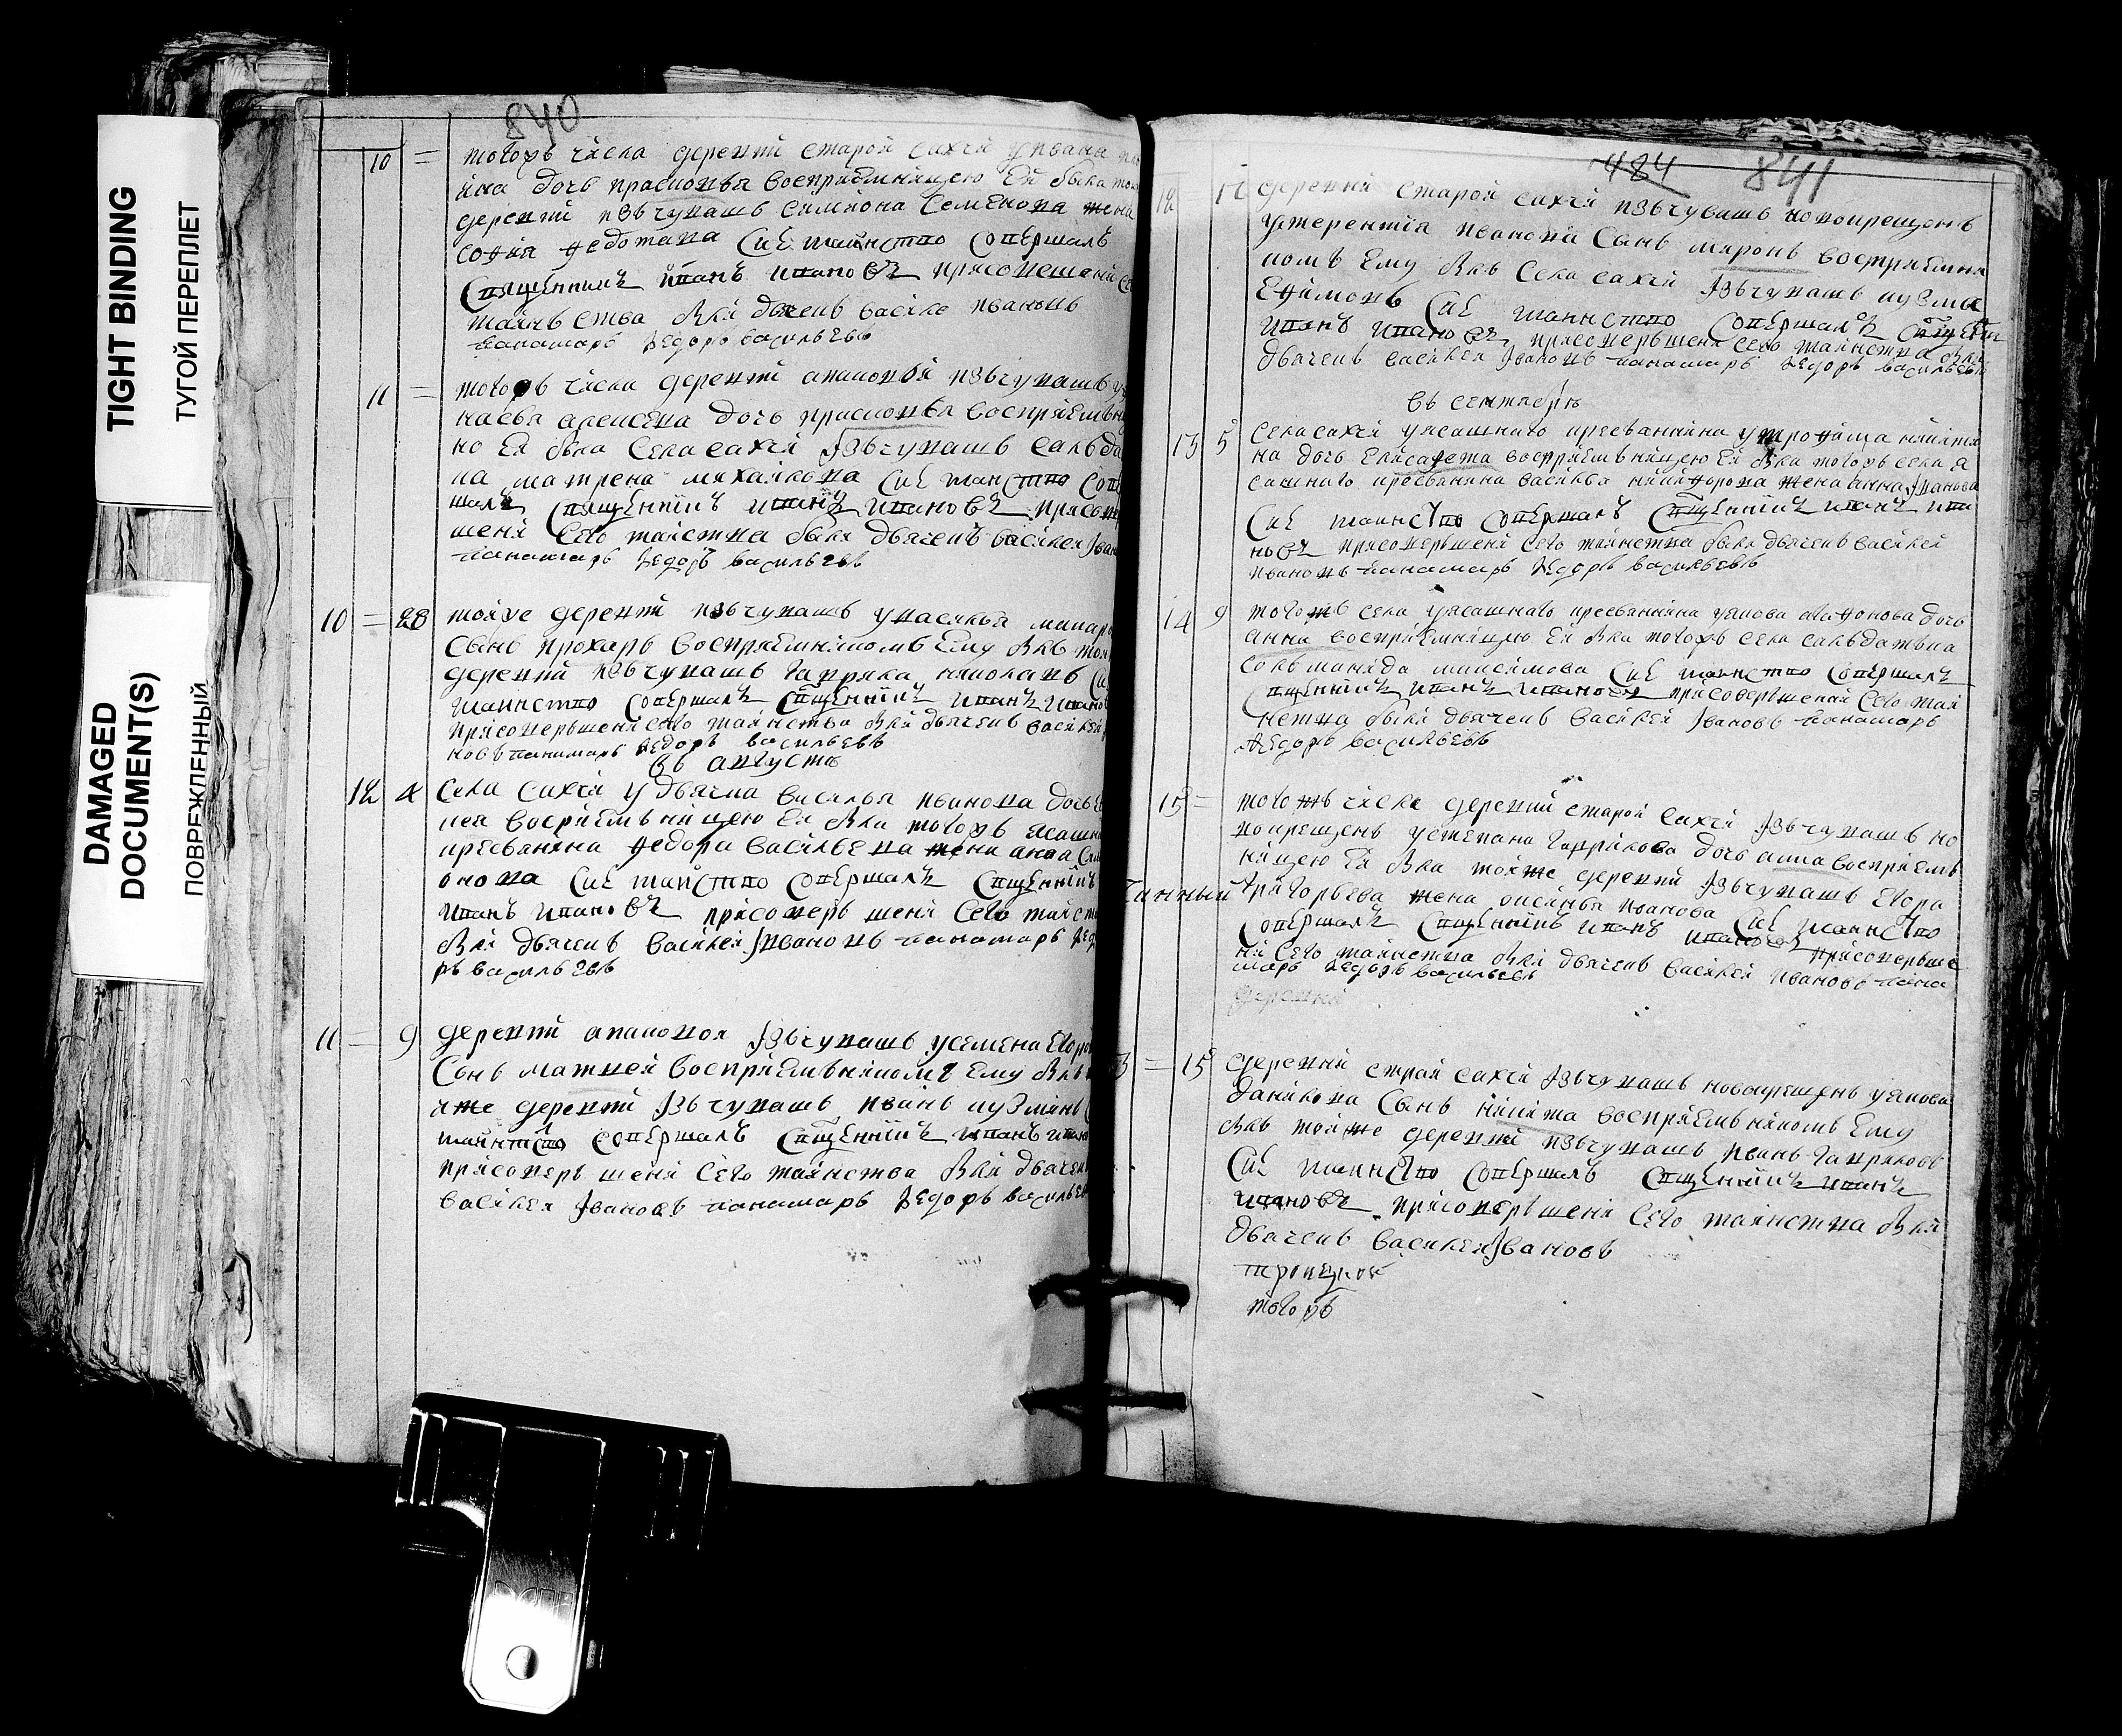 TIGHT BINDING
ТУГОЙ ПЕРЕПЛЕТ
DAMAGED
DOCUMENT(S)
ПОВРЕЖДЕННЫЙ
840
10 = тогожъ числа деревни старой сахчи уивана
дочь прасковья восприемницею ей была
деревни изъ чувашъ симиона семенова жена
софия федотава сие таинство совершалъ
священникъ иванъ ивановъ присовершени
таинъства были дьячекъ василе ивановъ
панамарь федоръ васильевъ
11 = тогожъ числа деревни апаковой изъ чувашъ
алексева дочь прасковья восприемъ
но ей была села сахчи изъ чувашъ салъда
ка матрена михайлова сие таинство сове
шалъ священникъ иванъ ивановъ присове
шени сего таинства были дьячекъ василей иван
панамарь федоръ васильевъ
10 = 28 тояже деревни изъ чувашъ увасилья макар
сынъ прохаръ восприемникомъ ему былъ тои
деревни изъ чувашъ гаврила николавъ си
таинство совершалъ священникъ иванъ ивано
присовершени сего таинства были дьячекъ василей
новъ панамарь федоръ васильевъ
въ августе
12 4 села сахчи у дьячка василья иванова дочь
восприемъницею ей была тогожъ ясашн
кресьянина федора васильева жена анна сим
онова сие таинство совершалъ священникъ
иванъ ивановъ присовершени сего таинст
были дьячекъ василей ивановъ панамарь фед
ръ васильевъ
11 = 9 деревни апаковой изъ чувашъ усемена егоро
сынъ матвей восприемъникомъ ему былъ
яже деревни изъ чувашъ иванъ кузминъ
таинство совершалъ священникъ иванъ иван
присоверъшени сего таинства были дьячек
василей ивановъ панамарь федоръ васильев
484 841
12 12 деревни старой сахчи изъ чувашъ новокрещенъ
утерентия иванова сынъ миронъ восприемни
комъ ему былъ села сахчи изъ чувашъ кузма
ефимовъ сие таинство совершалъ священикъ
иванъ ивановъ присовершени сего таинства были
дьячекъ василей ивановъ панамарь федоръ васильевъ
въ сентябрѣ
13 5 села сахчи уясашнаго кресьянина утрофима никити
на дочь елисавета восприемъницею ей была тогожъ села я
сашнаго кресьянина василья никифорова жена анна иванова
сие таинство совершалъ священникъ иванъ ива
новъ присовершени сего таинства были дьячекъ василей
ивановъ панамарь федоръ васильевъ
14 9 тогожъ села уясашнаго кресьянина уякова агафонова дочь
анна восприемницею ей была тогожъ села салъдатка
соломанида максимова сие таинство совершалъ
священникъ иванъ ивановъ присовершении сего таи
нства были дьячекъ василей ивановъ панамарь
федоръ васильевъ
15 = тогожъ числа деревни старой сахчи изъ чувашъ но
вокрещенъ устепана гаврилова дочь анна восприемъ
ницею ей была тояже деревни изъ чувашъ егора
григорьева жена аксинья иванова сие таинство
совершалъ священникъ иванъ ивановъ присоверше
ни сего таинства были дьячекъ василей ивановъ пана
марь федоръ васильевъ
деревни
3 = 15 деревни страй сахчи изъ чувашъ новокрещенъ уякова
данилова сынъ никита восприемъникомъ ему
былъ тояже деревни изъ чувашъ иванъ гавриловъ
сие таинство совершалъ священникъ иванъ
ивановъ присовершени сего таинства были
дьячекъ василей ивановъ
троецкой
тогожъ